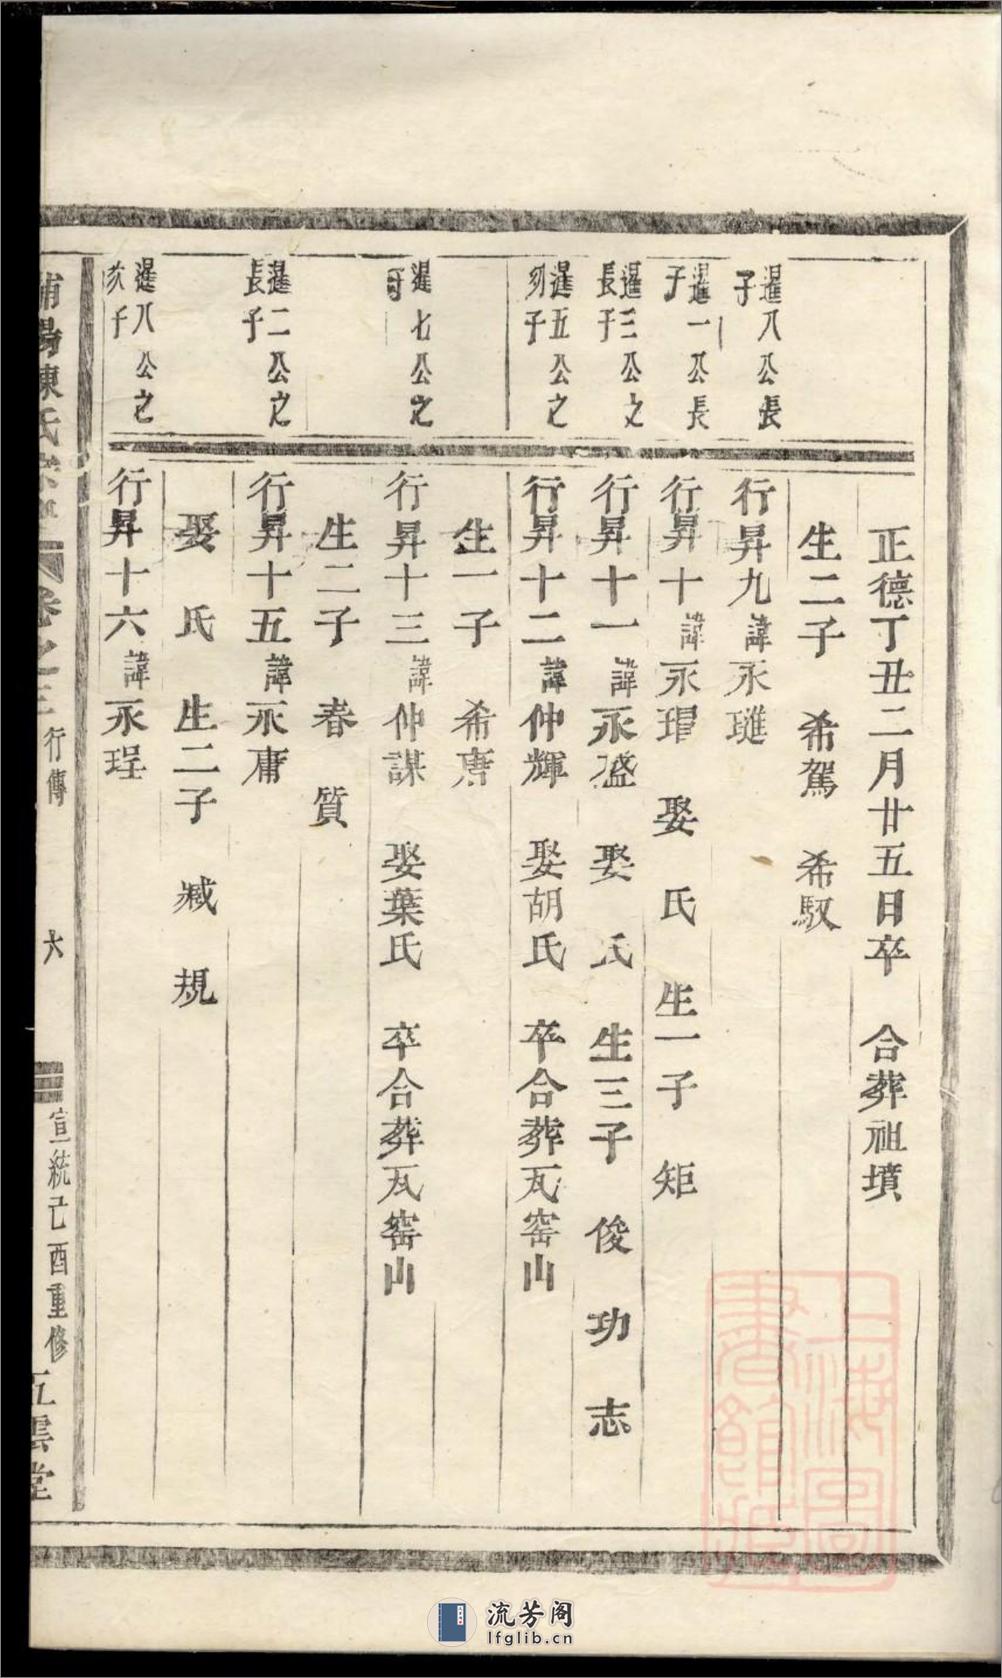 正德丁丑二月廿五日卒 合葬祖墳
生二子 希駕 希馭
暹八公長子
行昇九諱永璡
暹一公長子
行昇十諱永瑁 娶 氏 生一子 矩
暹三公之長子
行昇十一諱永盛 娶 氏 生三子 俊 功 志
暹五公之次子
行昇十二諱仲輝 娶胡氏 卒合葬瓦窑山
生一子 希唐
暹七公之
行昇十三諱仲謀 娶葉氏 卒合葬瓦窑山
生二子 春 質
暹二公之長子
行昇十五諱永庸
娶 氏 生二子 臧 規
暹八公之次子
行昇十六諱永珵
浦陽陳氏宗譜 卷之三 行傳 六 宣統己酉重修 五雲堂
上海圖書館藏
流芳阁
lfglib.cn